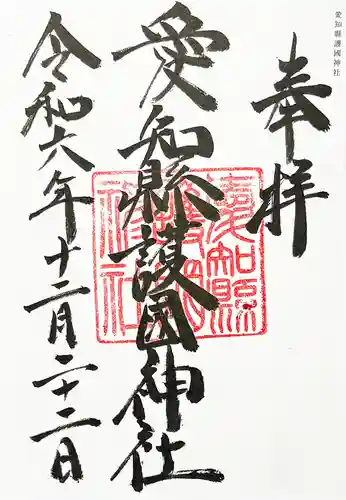 愛知縣護國神社
奉拝
愛知縣護國神社
愛知縣
護國
神社
令和六年十二月二十二日